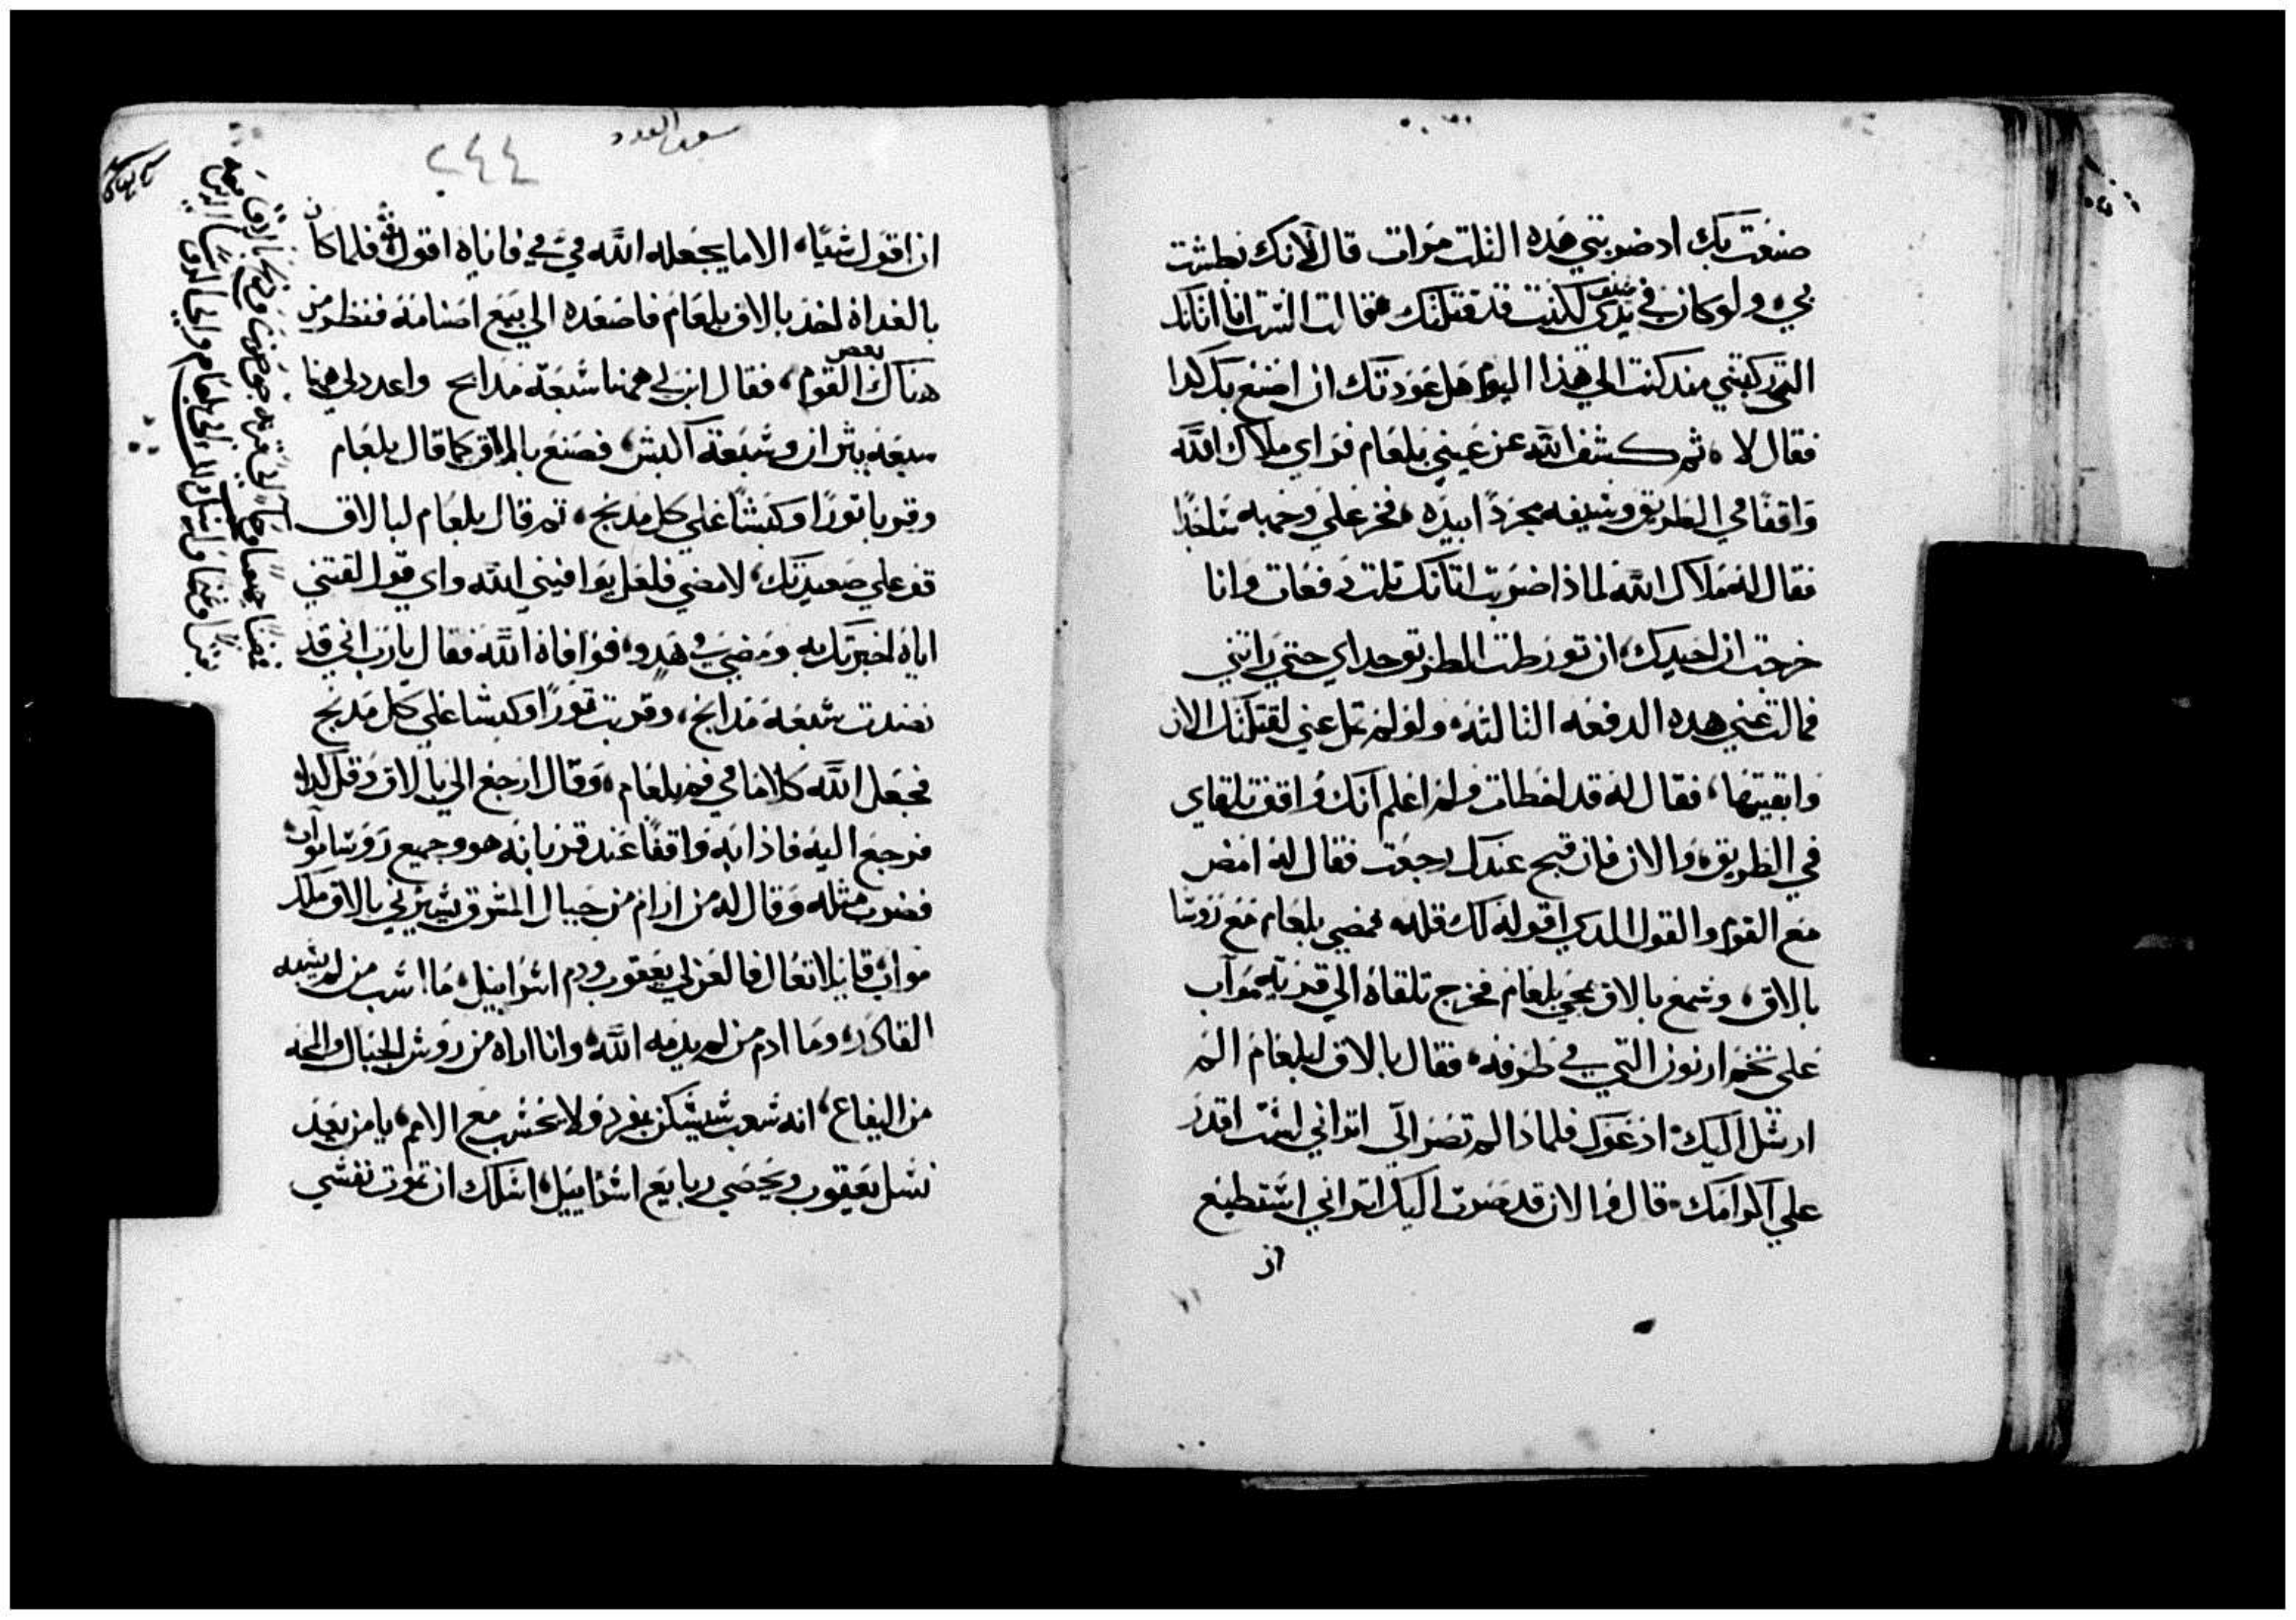 صنعت بك اد ضربتني هده الثلث مرات قال لانك بطشت
بي، ولو كان في يدي سيف لكنت قد قتلتك، فقالت الست انا اتانك
التي ركبتني مند كنت الي هذا اليوم هل عودتك ان اصنع بك كدا
فقال لا، ثم كشف الله عن عيني بلعام فراي ملاك الله
واقفا في الطريق وسيفه مجردا بيده، فخر علي وجهه ساجدا
فقال له ملاك الله لماذا ضربت اتانك تلت دفعات وانا
خرجت ان احيدك، ان تورطت الطريق حداي حتي راتني
فمالت عني هده الدفعه التالته، ولو لم تمل عني لقتلتك الان
وابقيتها، فقال له قد اخطات ولم اعلم انك واقف تلقاي
في الطريق، والان فان قبح عندك رجعت فقال له امض
مع القوم والقول الدي اقوله لك قله، فمضي بلعام مع روسا
بالاق، وسمع بالاق بمجي بلعام فخرج تلقاه الي قرية مواب
علي تخم ارنون التي في طرفه، فقال بالاق لبلعام الم
ارسل اليك، ادعوك فلماذا لم تصر الي اتراني لست اقدر
علي اكرامك، قال والان قد صرت اليك اتراني استطيع
ان
سفر العدد
٢٤٤
ان اقول شيا، الا ما يجعله الله في في فاياه اقول، فلما كان
بالغداة اخد بالاق بلعام فاصعده الي بيع اصنامه فنظر من
هناك بعض القوم، فقال ابن لي ههنا سبعة مدابح واعدد لي ههنا
سبعة ثيران وسبعة اكبش، فصنع بالاق كما قال بلعام
وقربا ثورا وكبشا علي كل مدبح، ثم قال بلعام لبالاق
قف علي صعيدتك، لامضي فلعل يوافيني الله واي قول لقنني
اياه اخبرتك به ومضي في هدو، فوافاه الله فقال يا رب اني قد
نضدت سبعة مدابح، وقربت ثورا وكبشا علي كل مدبح
فجعل الله كلاما في فم بلعام، وقال ارجع الي بالاق وقل كدا،
فرجع اليه فاذا به واقفا عند قربانه هو وجميع روسا مواب
فضرب مثله وقال له من ارام من جبال المشرق يسيرني بالاق ملك
مواب قايلا تعال فالعن لي يعقوب ودم اسراييل، ما اسب من لم يسبه
القادر، وما ادم من لم يدمه الله، وانا اراه من روس الجبال والمحه
من اليفاع، انه شعب سيسكن بفرد ولا يحسب مع الامم، يا من يعد
نسل يعقوب ويحصي ربايع اسراييل، اسلك ان تموت نفسي